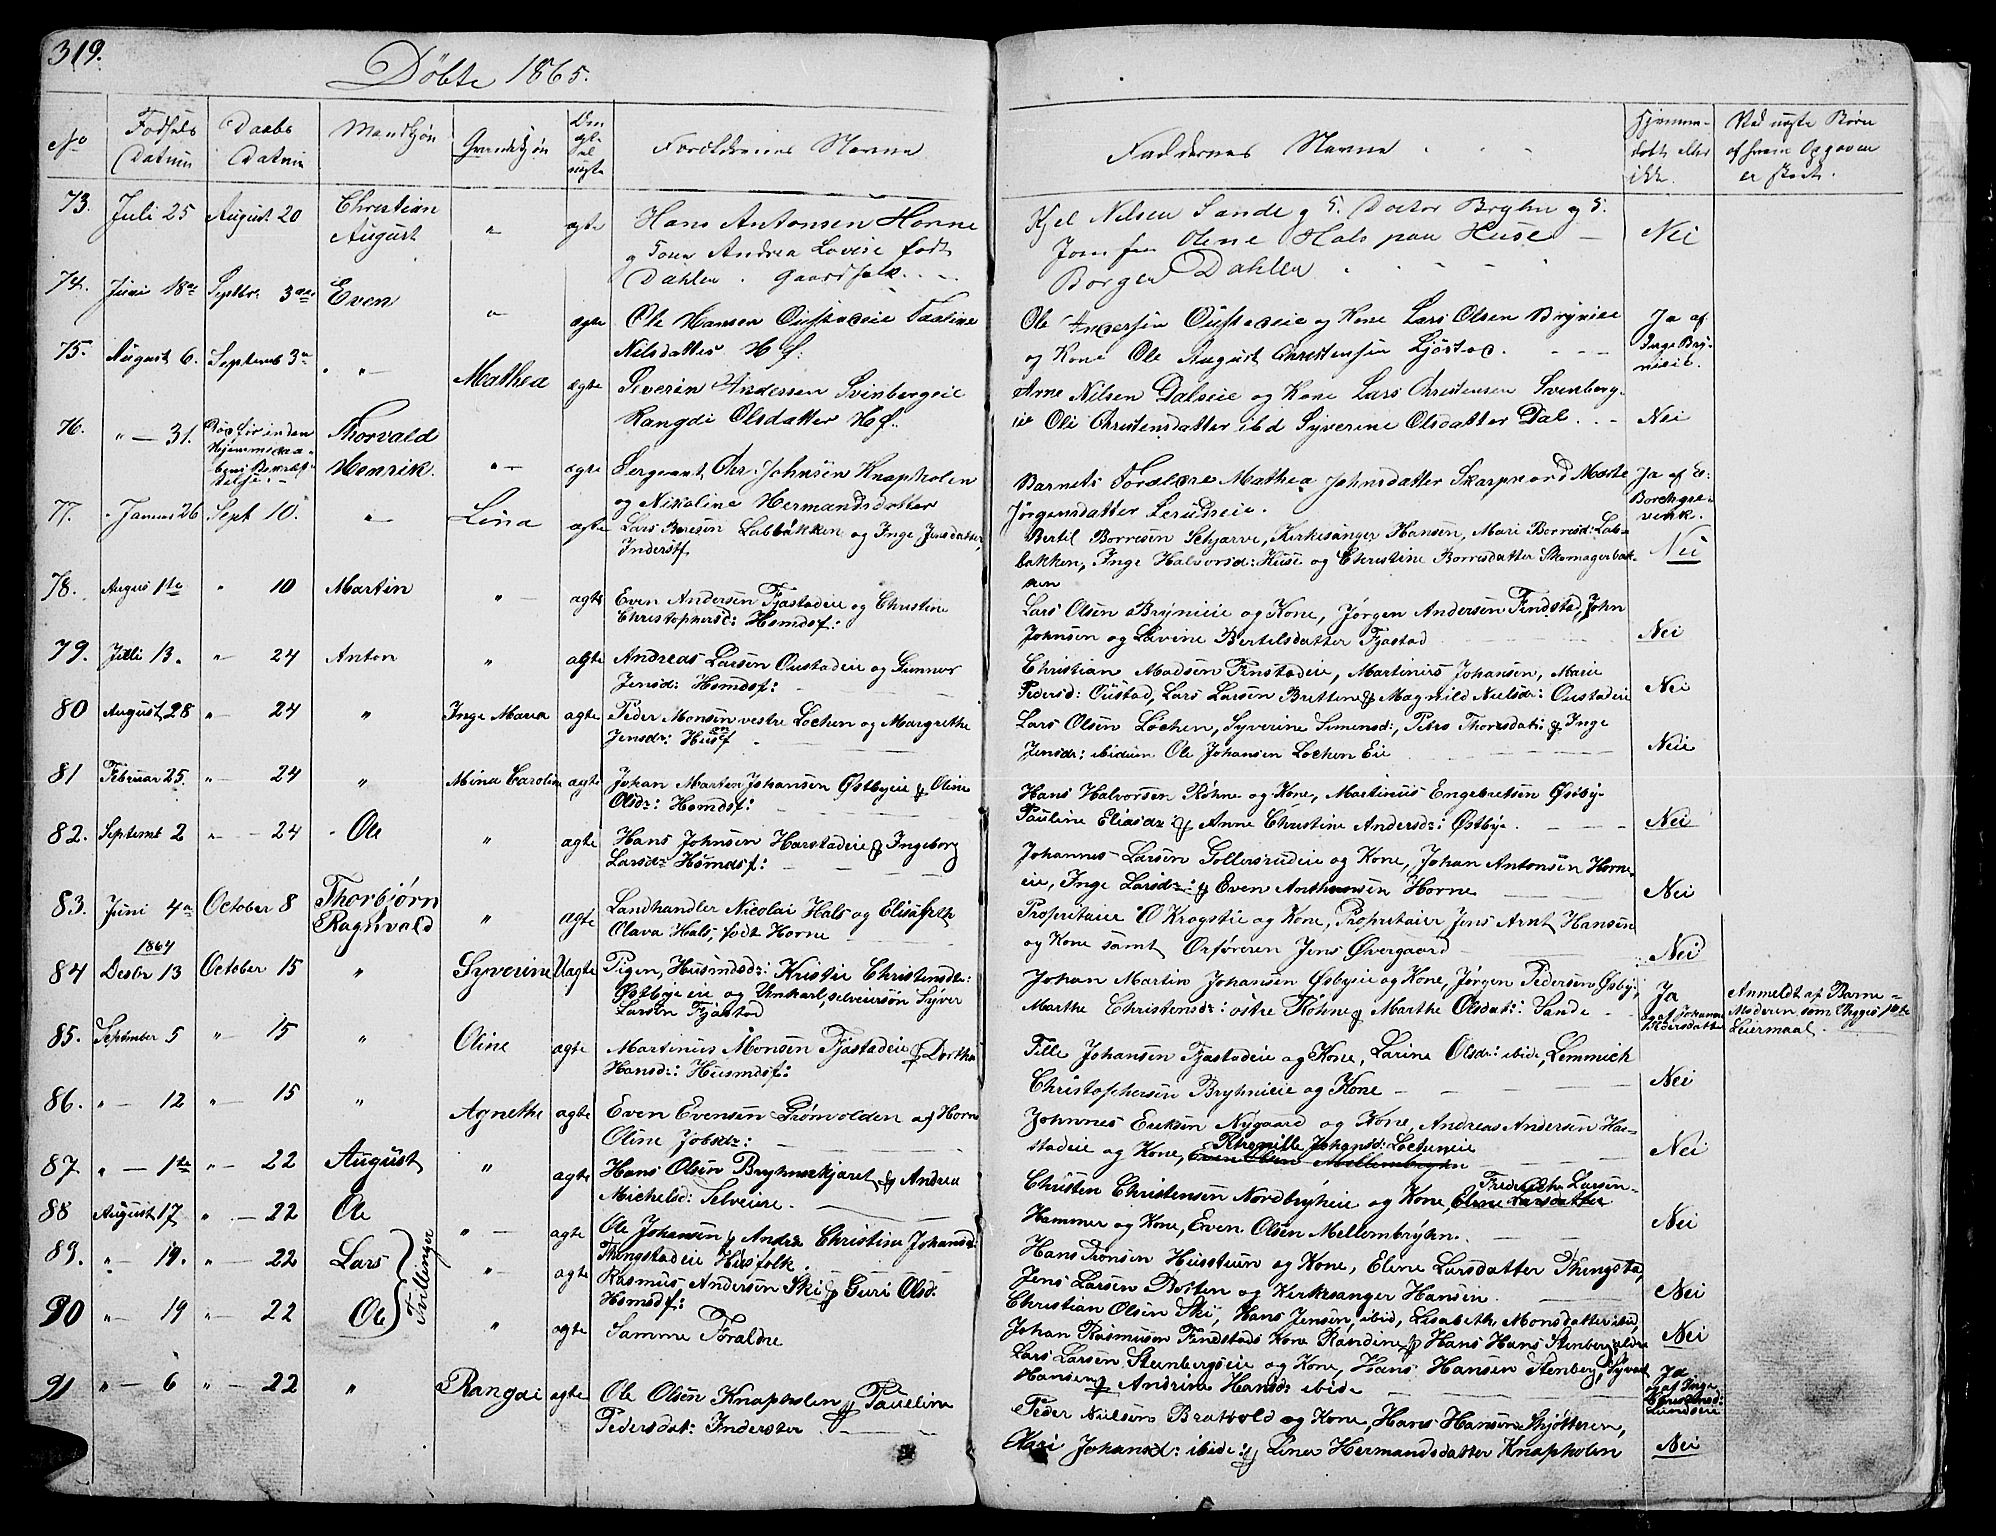 319.
Döbte 1865.
No
Födsels Datum
Daabs Datum
Mandkjøn
Qvindekjøn
Om ægte el uægte
Forældrenes Navne
Faddernes Navne
Hjemmedøbt eller ikke.
Ved uægte Børn af hvem Opgaven er skeet.
73. Juli 25 August 20 Christian August " ægte
Hans Antonsen Horne
g Kone Andrea Lovise født
Dahlen. Gaardfolk.
Kjel Nilsen Sande g F. Doctor Bryhn g F.
Jomfru Oline Hals paa Huse
Borger Dahlen
Nei
74. Juni 18de Septbr 3die Even " ægte
Ole Hansen Oustadeie
Nilsdatter H f:
Ole Andersen Oustadeie og Kone Lars Olsen Brynieie
og Kone Ole August Christensen Ljøstad.
Ja af
Inge Brynieie.
75. August 6. Septemb 3die " Mathea ægte
Severin Andersen Svinbergeie
Rangdi Olsdatter H f.
Arne Nilsen Dalseie og Kone Lars Christensen Svenbergeie Oli Christensdatter ibd Syverine Olsdatter Dal.
Nei
76. " 31. Død før inden Hjemmedaabens Bekræftelse. Thorvald Henrik. " ægte
Sergeant Chr. Johnsen Knapholen
og Nikoline Hermandsdatter
Barnets Forældre Mathea Johnsdatter Skarpnord Marte
Jørgensdatter Lerudseie.
Ja af Er: Borchgrevink.
77. Januar 26 Sept 10. " Lina ægte
Lars Boresen Labbakken og Inge Jensdatter,
Inderstf.
Bertil Borresen Schjarve, Kirkesanger Hansen, Mari Borresd: Labbakken, Inge Halvorsd: Huse og Christine Borresdatter Skomagerbakken
Nei
78. Augus 1te " 10 Martin " ægte
Even Andersen Fjæstadeie og Christine
Christophersd: Hsmdsf:
Lars Olsen Brynieie og Kone, Jørgen Andersen Findstad, John
Johnsen og Lovine Bertelsdatter Fjæstad
Nei
79. Juli 13. " 24 Anton " ægte
Andreas Larsen Oustadeie og Gunnor
Jensd: Hsmdsf:
Christian Madsen Finstadeie, Martinius Johansen, Marie
Pedersd: Oustad, Lars Larsen Britten & Magnild Nielsdr: Oustadeie
Nei
80 August 28 " 24 " Inge Maria ægte
Peder Monsen vestre Lochen og Margrethe
Jensdr: Husmf
Lars Olsen Lochen, Syverine Simensd:, Petra Thoresdat: & Inge
Jensdr: ibidum Ole Johansen Lochen Eie
Neie
81 Februar 25. " 24 " Mina Caroline ægte
Johan Martin Johansen Østbyeie & Oline
Olsdr: Hsmdsf:
Hans Halvorsen Røhne og Kone, Martinius Engebretsen Østby
Pauline Eliasdr: & Anne Christine Andersdr: Østbye.
Nei
82. Septembr 2 " 24 Ole " ægte
Hans Johnsen Harstadeie & Ingeborg
Larsdr: Hsmdsf:
Johannes Larsen Gollersrudeie og Kone, Johan Antonsen Horneeie, Inge Larsdr: & Even Anthonsen Horne
Nei
83. Juni 4de October 8 Thorbjørn Raghvald " ægte
Landhandler Nicolai Hals og Elisabeth
Olava Hals, født Horne
Propritaier O Krogstie og Kone, Propritaier Jens Arnt Hansen
og Kone samt Orføreren Jens Øvergaard
Nei
84 1864 Desbr 13 October 15 " Syverine Uægte
Pigen, Husmdsdr: Kristie Christensdr:
Østbyeeie og Unkarl, selveiersøn Syver
Larsen Fjæstad
Johan Martin Johansen Øsbyeie og Kone, Jørgen Pedersen Øsby,
Marthe Christensdr: østre Røhne & Marthe Olsdat: Sande
Ja
Anmeldt af Barnemoderen som Plyges 1ste Leiermaal.
85. September 5 " 15 " Oline ægte
Martinus Monsen Fjæstadeie & Dorthe
Hansdr: Husmdsf:
Tille Johansen Fjæstadeie og Kone, Larine Olsdr: ibide, Lemmich
Christophersen Bryhnieie og Kone
Nei
86. " 12 " 15 " Agnethe ægte
Even Evensen Grønvolden af Horn
Oline Jobsdr:
Johnnes Eriksen Nygaard og Kone, Andreas Andersen Harstadeie og Kone, Petronille Johansd: Locheneie
Nei
87. " 1te " 22 August " ægte
Hans Olsen Bryhnskjæret & Andrea
Michelsd: Selveiere.
Christen Christensen Nordbryheie og Kone, Frederich Larsen
Hammer og Kone, Even Olsen Mellembryhn.
Nei
88 August 17 " 22 Ole " ægte
Ole Johansen & Andre Christine Johansd:
Thingstadeie Husfolk.
Hans Tronsen Husstuen og Kone, Eline Larsdatter Thingsta,
Jens Larsen Botten og Kirkesanger Hansen.
Nei
89. " 19. " 22 Lars " ægte
Tvillinger
Rasmus Andersen Ski & Guri Olsd:
Hsmdsf:
Christian Olsen Ski, Hans Jensen, ibid, Lisabeth Monsdatter ibid,
Nei
90 " 19 " 22 Ole " ægte
Samme Foraldre
Johan Rasmusen Findstads Kone Randine & Hans Hans Stenberg
Lars Larsen Stenbergseie og Kone, Hans Hansen Stenberg, Syver
Hansen & Andrine Hansdr ibide
Ja
og af Inge
91 " 6 " 22 " Rangdi ægte
Ole Olsen Knapholen & Pauline
Pedersdat: Inderster
Peder Nielsen Bratvold og Kone, Hans Hansen Skjøtteren,
Kari Johansd: ibide: & Line Hermandsdatter Knapholen
Nei